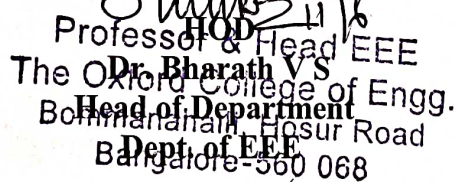 HOD
Professor & Head EEE
Dr. Bharath V S
The Oxford College of Engg.
Head of Department
Bommanahalli, Hosur Road
Dept. of EEE
Bangalore-560 068